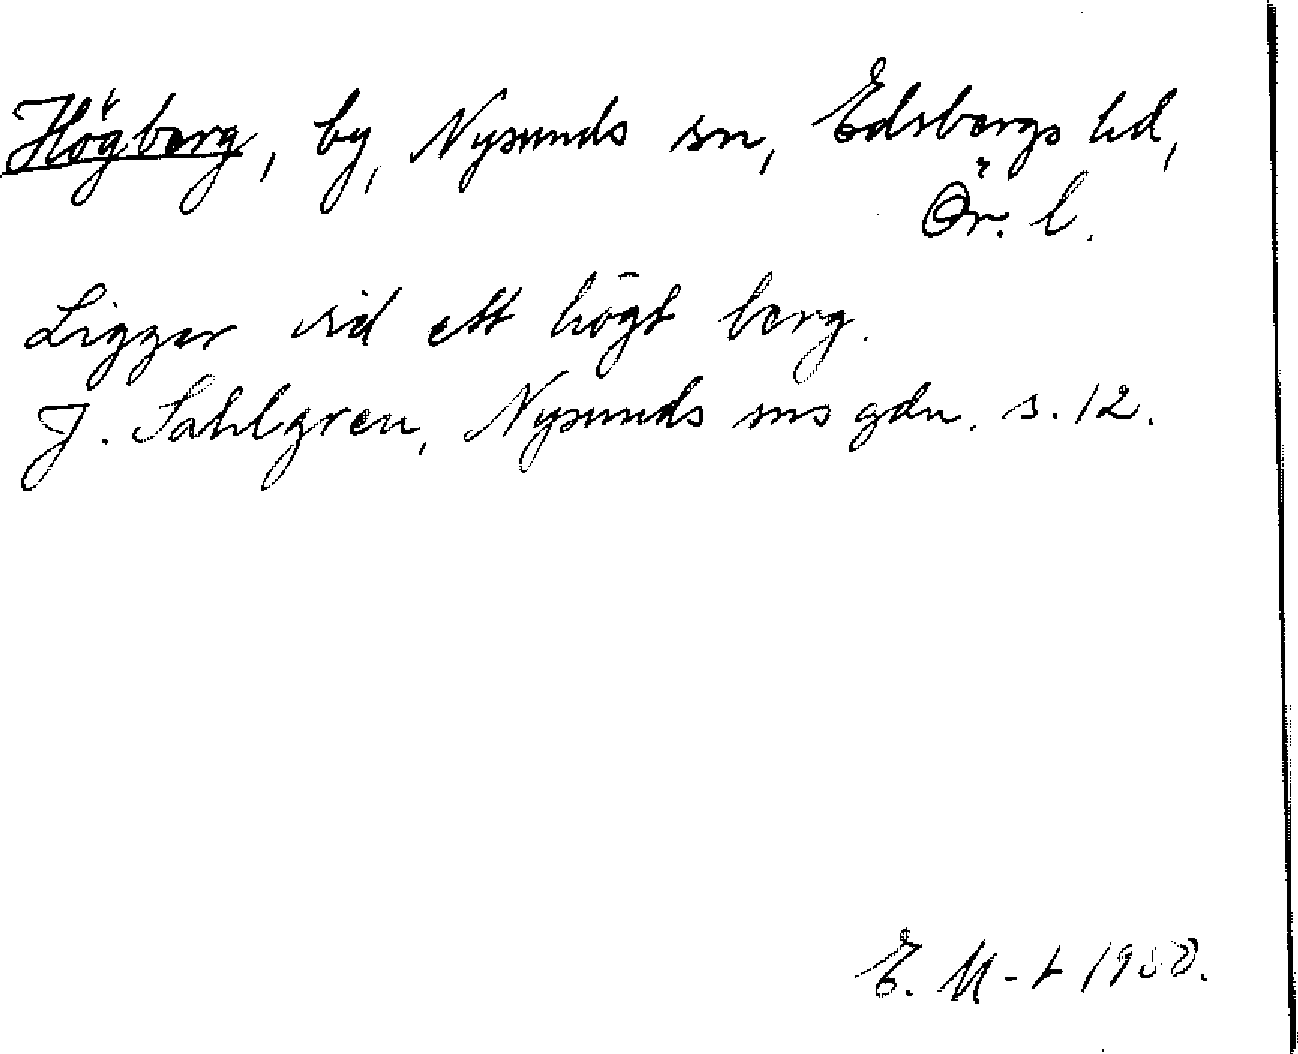 Högberg, by, Nysunds sn, Edsbergs hd,
Ör. l.
Ligger vid ett högt berg.
J. Sahlgren, Nysunds sns gdn. s. 12.
E. M-t